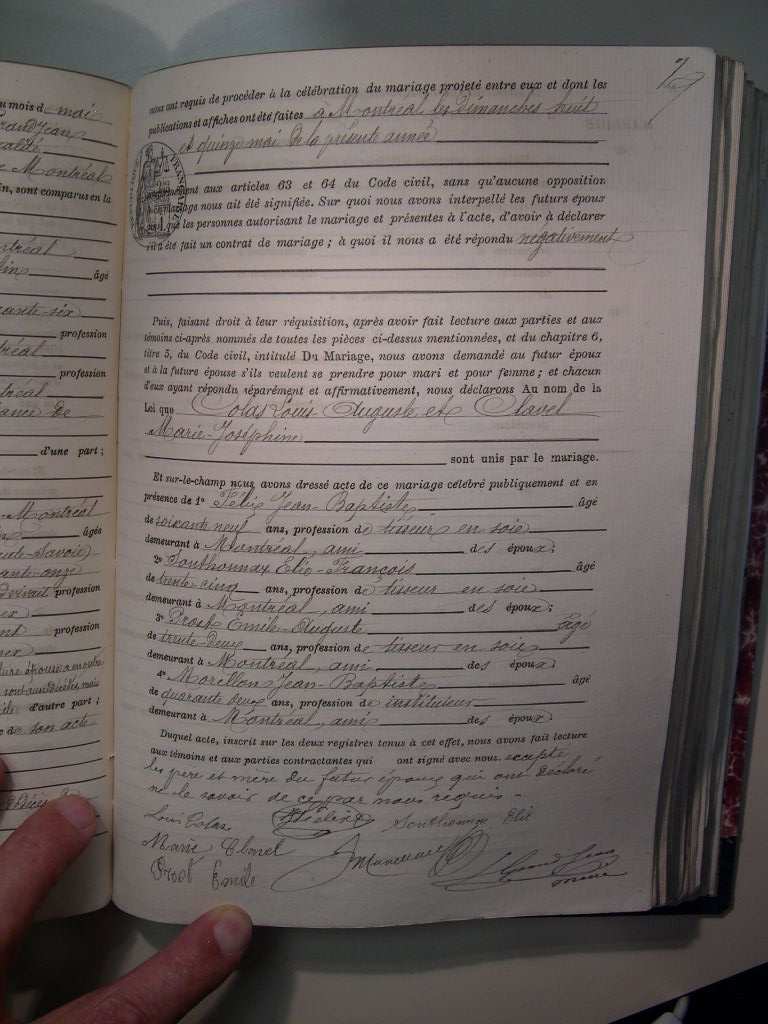 u mois d
mai
Grandjean
ealité
e Montréal
in, sont comparus en la
ntréal
lin
âgé
rante-six
profession
tréal
profession
tréal
sance de
d'une part ;
Montréal
âgés
ute-Savoie)
ante-onze
profession
profession
d'autre part ;
de son acte
nous ont requis de procéder à la célébration du mariage projeté entre eux et dont les
publications et affiches ont été faites à Montréal les dimanches huit
et quinze mai de la présente année
aux articles 63 et 64 du Code civil, sans qu'aucune opposition
mariage nous ait été signifiée. Sur quoi nous avons interpellé les futurs époux
que les personnes autorisant le mariage et présentes à l'acte, d'avoir à déclarer
s'il a été fait un contrat de mariage ; à quoi il nous a été répondu négativement
Puis, faisant droit à leur réquisition, après avoir fait lecture aux parties et aux
témoins ci-après nommés de toutes les pièces ci-dessus mentionnées, et du chapitre 6,
titre 5, du Code civil, intitulé Du Mariage, nous avons demandé au futur époux
et à la future épouse s'ils veulent se prendre pour mari et pour femme ; et chacun
d'eux ayant répondu séparément et affirmativement, nous déclarons Au nom de la
Loi que Colas Louis-Auguste et Clavel
Marie-Joséphine
sont unis par le mariage.
Et sur-le-champ nous avons dressé acte de ce mariage célébré publiquement et en
présence de 1° Félix Jean-Baptiste âgé
de soixante neuf ans, profession de tisseur en soie
demeurant à Montréal, ami des époux ;
2° Sonthonnax Elie-François âgé
de trente cinq ans, profession de tisseur en soie
demeurant à Montréal, ami des époux ;
3° Prost Emile-Auguste âgé
de trente-deux ans, profession de tisseur en soie
demeurant à Montréal, ami des époux
4° Morellon Jean-Baptiste âgé
de quarante deux ans, profession de instituteur
demeurant à Montréal, ami des époux
Duquel acte, inscrit sur les deux registres tenus à cet effet, nous avons fait lecture
aux témoins et aux parties contractantes qui ont signé avec nous. excepté
les père et mère du futur époux qui ont déclaré
ne le savoir de ce par nous requis -
Louis Colas
Sonthonnax Elie
Marie Clavel
Prost Emile
Grand Jean
maire